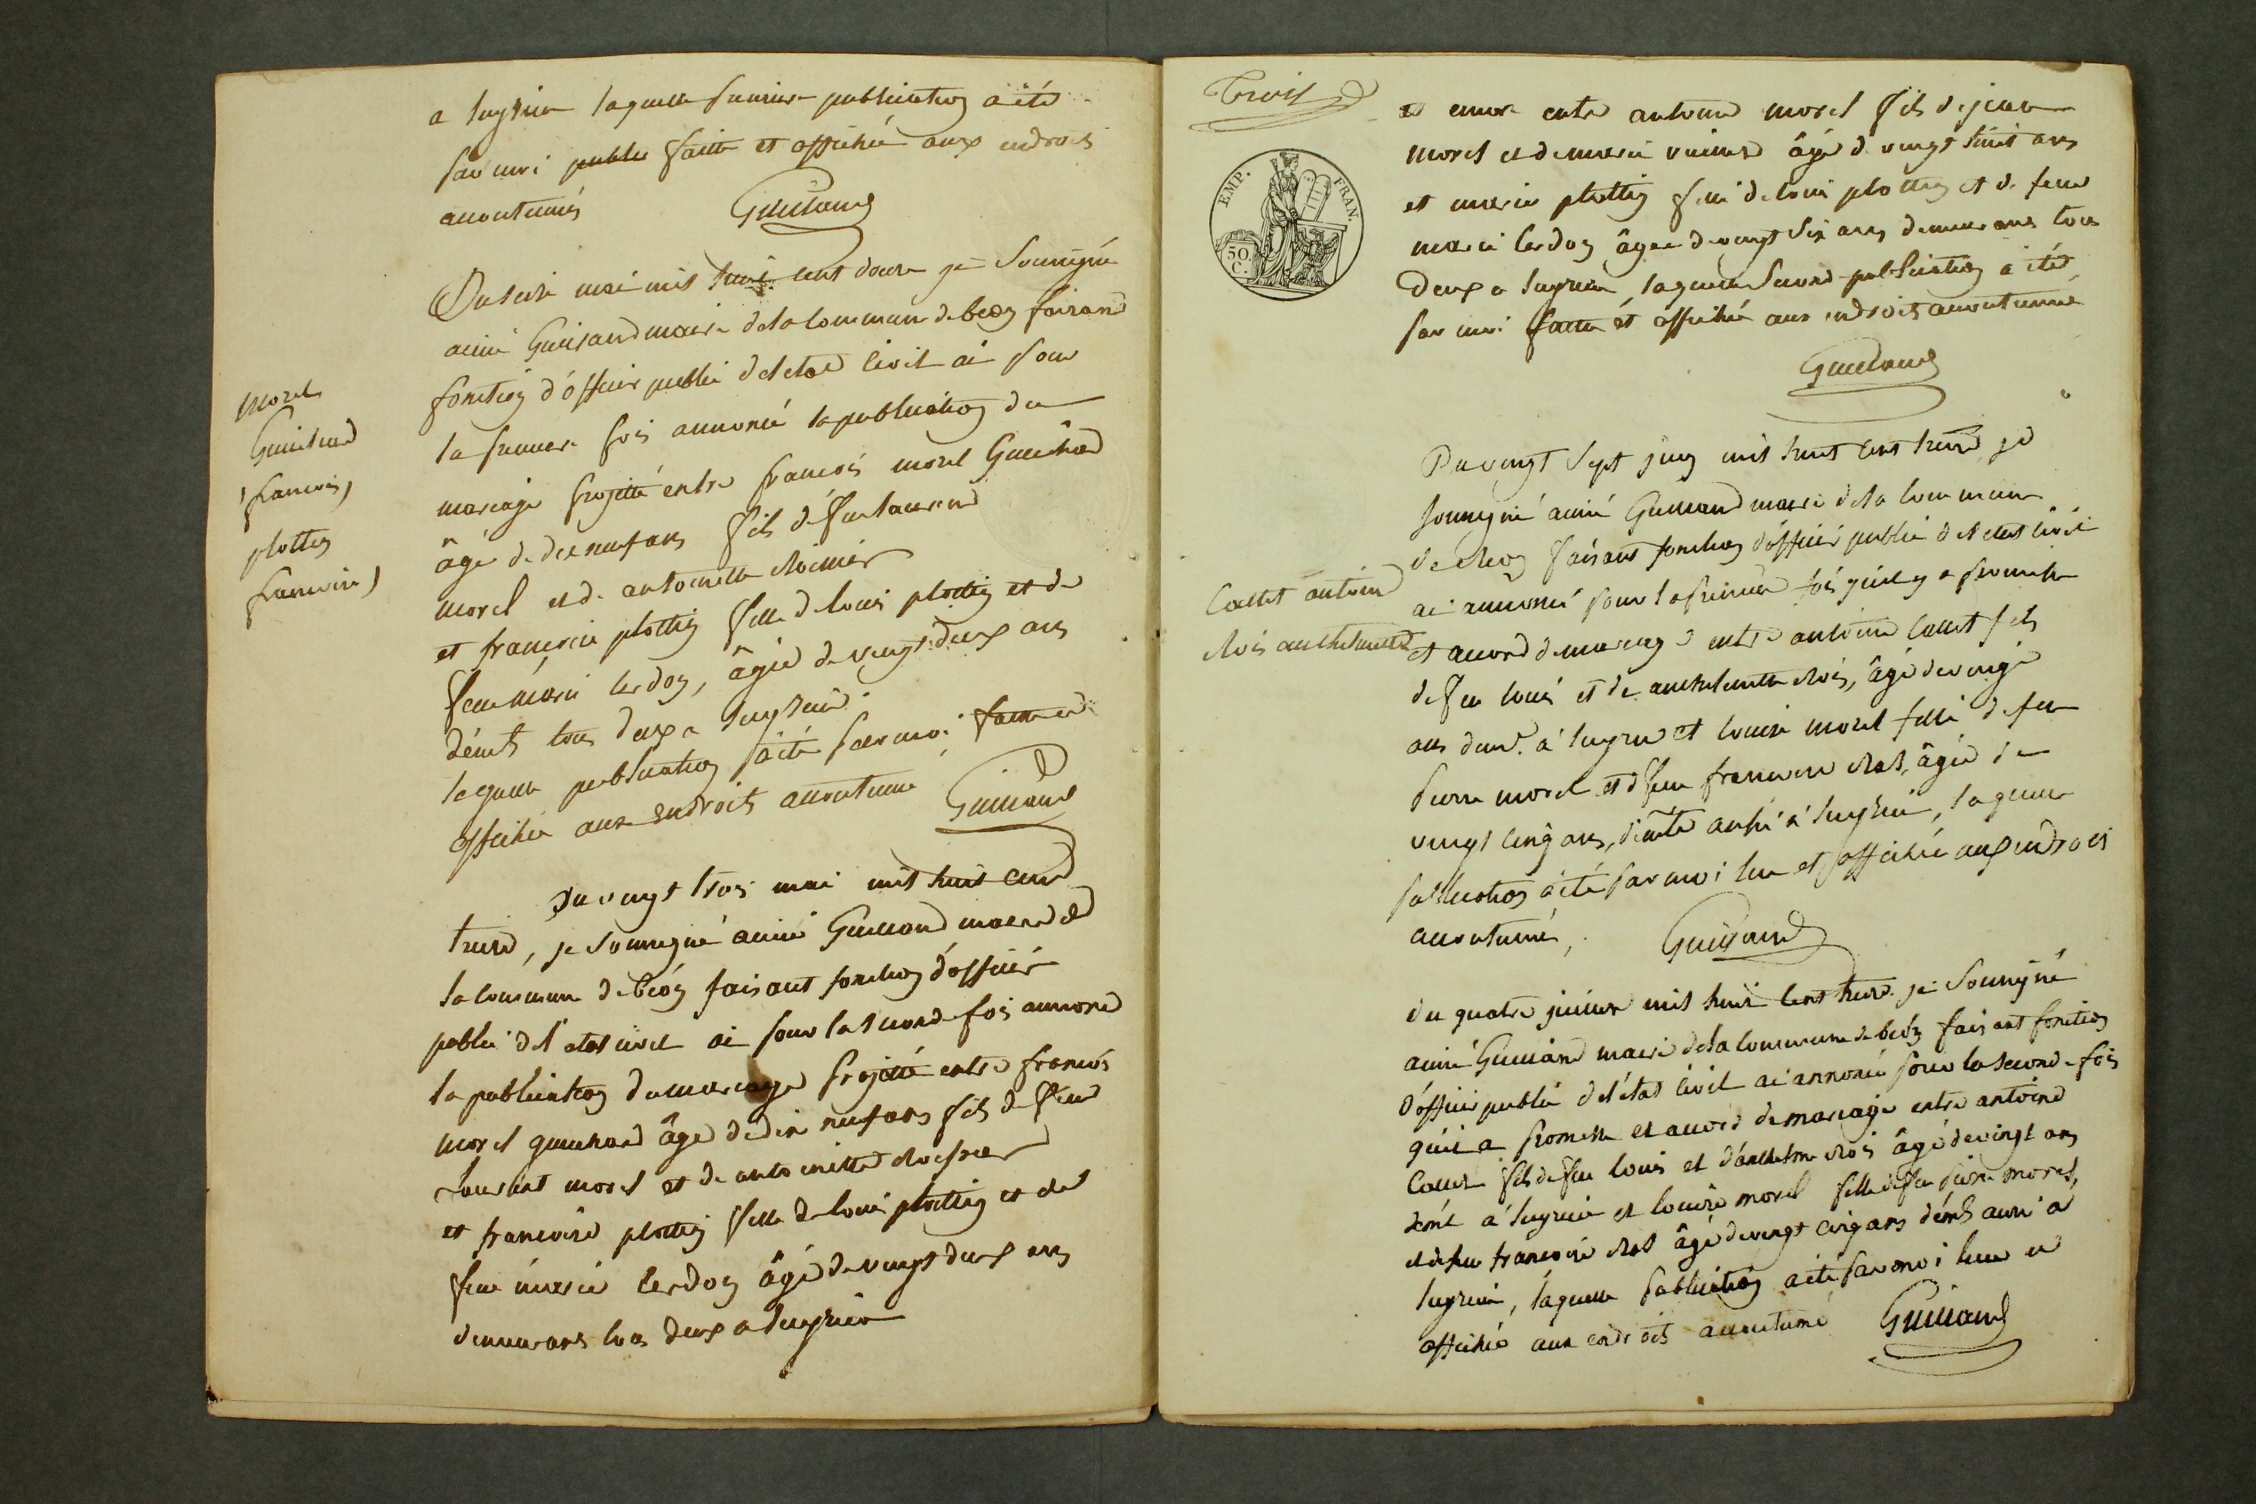 a lugrin laquelle premiere publication a été
par moi publee faitte et affichée aux endrois
acoutumés
Guilland
Du seise mai mil huit cent douse je Sousigné
aimé Guilland maire de la commune de beon faisand
fonction d'officier public de l'etat civil ai pour
la premiere fois annoncé la publication du
mariage projetté entre francois morel Guichard
âgé de dix neuf ans fils de feu laurend
morel et de antoinette
et francoise plottin fille de louis plottin et de
feu marie lerdon, âgée de vingt deux ans
démts tous deux a lugrin
laquelle publication a été par moi faitte et
affichée aux endroits acoutumé
Guilland
morel
Guichard
francois,
plottin
francoise,
Du vingt trois mai mil huit cent
treise, je Sousigné aimé Guilland maire de
la commune de béon faisant fonction d'officier
public de l'etat civil ai pour la seconde fois annoncé
la publication du mariage projetté entre francois
morel guichard âgé de dix neuf ans fils de feu
Laurent morel et de antoinette
et francoise plottin fille de louis plottin et de
feue marie lerdon âgé de vingt deux ans
demeurans tous deux a lugrin
Trois
EMP. FRAN.
50.
C.
et encore entre antoine morel fils de jean
morel et de marie âgé de vingt huit ans
et marie plottin fille de louis plottin et de feue
marie lerdon âgée de vingt six ans demeurans tous
deux a lugrin, laquelle seconde publication a été
par moi faitte et affichée aux endroits acoutumé
Guilland
Du vingt sept juin mil huit cent treise je
sousigné aimé Guilland maire de la commune
de beon faisant fonction d'officier public de l'etat civil
ai annoncé pour la premiere fois qu'il y a promesse
et accord de mariage entre antoine Callet fils
de feu louis et de anthelmette rois, âgé de vingt
ans demt. a lugrin et louise morel fille de feu
pierre morel et de feue francoise âgée de
vingt cinq ans, démte aussi a lugrin, laquelle
publication a été par moi lue et affichée aux endrois
acoutumé,
Guilland
Callet antoine
rois anthelmette
du quatre juillet mil huit cent treise je Sousigné
aimé Guilland maire de la commune de beon faisant fonction
d'officier public de l'etat civil ai annoncé pour la seconde fois
qu'il a promesse et accord de mariage entre antoine
Callet fils de feu louis et d'anthelme rois âgé de vingt ans
démt a lugrin et louise morel fille de feu pierre morel,
et de feu francoise âgé de vingt cinq ans démt aussi a
lugrin, laquelle publication a été par moi lue et
affichée aux endroits acoutumé
Guilland